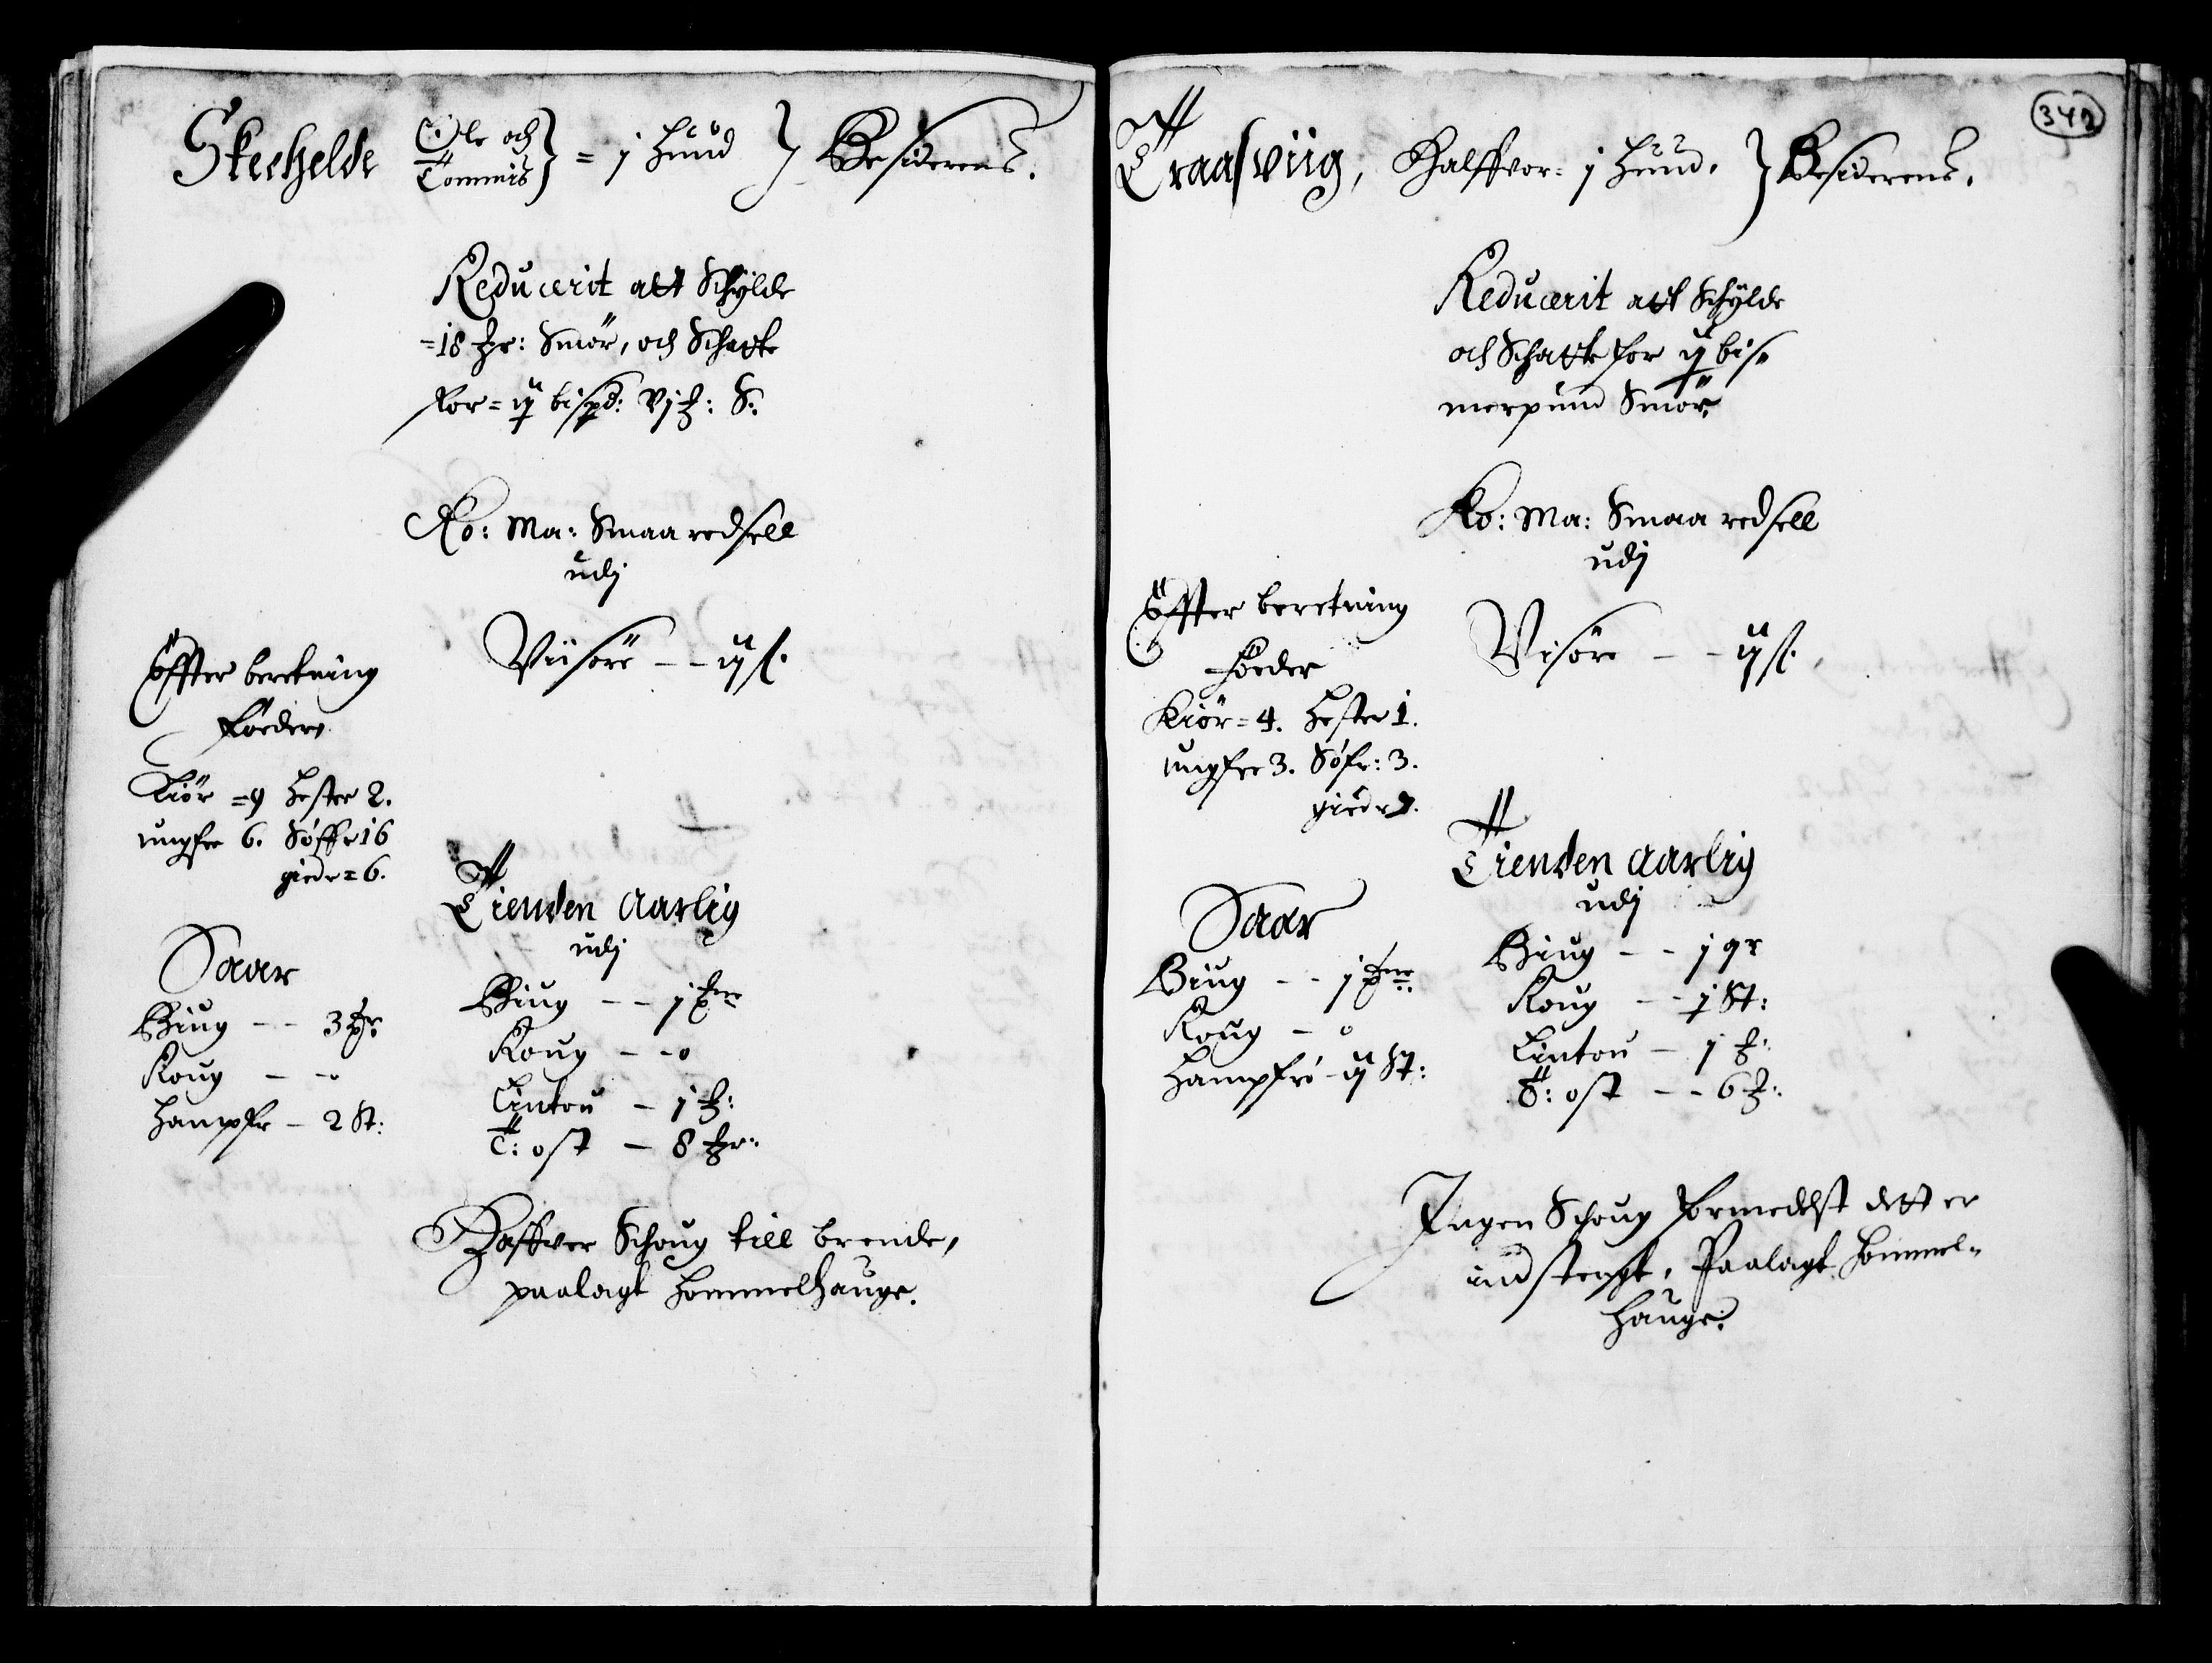 Skeehelde Ole och Tommis } = j Hund } Besiderens.
Reducerit att Schylde
= 18 : Smör, och Schatte
for = ij bispd: vj : S:
Ko: Ma: Smaa redsell
udj
Viisöre - - ij s.
Effter beretning
Föeder
Kiör = 9 Hester 2.
ungfee 6. Söffe 16
giede = 6.
Saar
Biug - - 3
Roug - - 0
Hampfr - 2 St:
Tienden Aarlig
udj
Biug - - j
Roug - - 0
Lintou - j :
T: ost - 8 :
Haffver Schoug till brende,
paalagt Hommelhauge.
342
Traasviig, Halffvor = j Hund. } Besiderens.
Reducerit att Schylde
och Schatte for ij bis=
merpund Smör.
Ko: Ma: Smaa redsell
udj
Visöre - - ij s.
Effter beretning
Föeder
Kiör = 4. Hester 1.
ungfee 3. Söfe: 3.
giede
Saar
Biug - - j
Roug - 0
Hampfrö - ij St:
Tienden Aarlig
udj
Biug - - j qr
Roug - - j St:
Lintou - j :
T: ost - - 6 :
Ingen Schoug formedelst dett er
indstengt, Paalagt Hommel=
Hauge.